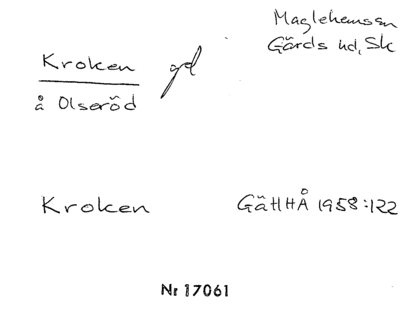 Maglehems sn
Gärds hd, Sk
Kroken gd
å Olseröd
Kroken GäHHÅ 1958:122
Nr 17061